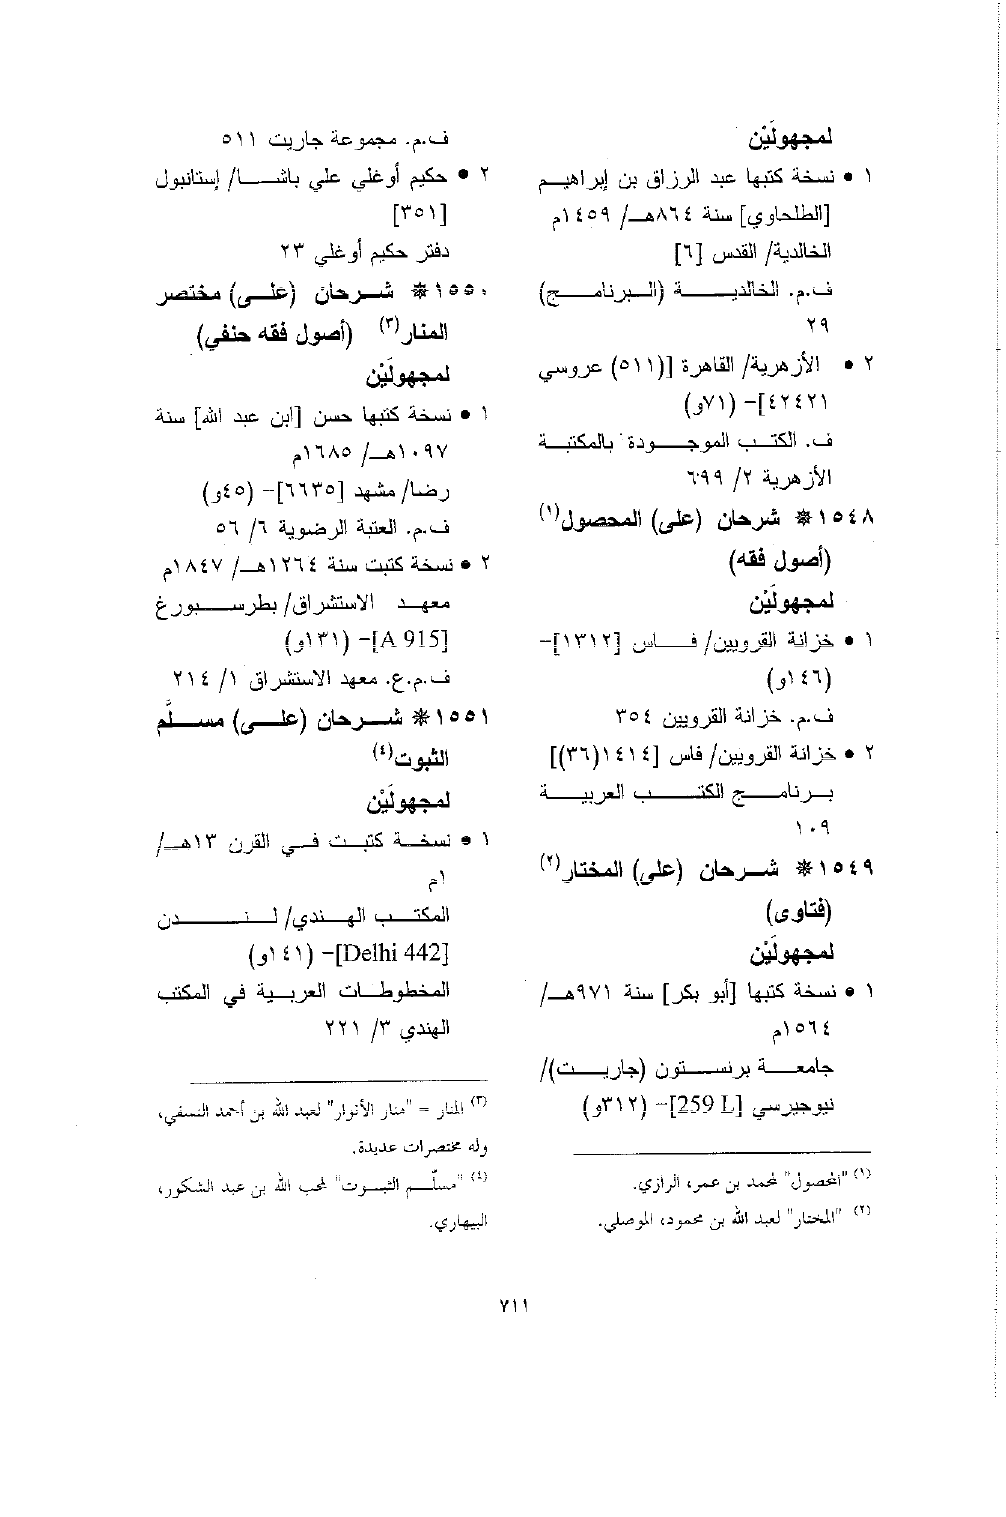 لمجهولَيْن
١ • نسخة كتبها عبد الرزاق بن إبراهيم
[الطلحاوي] سنة ٨٦٤هـ/ ١٤٥٩م
الخالدية/ القدس [٦]
ف.م. الخالديـة (البرنامـج)
٢٩
٢ • الأزهرية/ القاهرة [(٥١١) عروسي
٤٢٤٢١]- (٧١و)
ف. الكتب الموجودة بالمكتبة
الأزهرية ٢/ ٦٩٩
١٥٤٨* شرحان (على) المحصول(١)
(أصول فقه)
لمجهولَيْن
١ • خزانة القرويين/ فاس [١٣١٢]-
(١٤٦و)
ف.م. خزانة القرويين ٣٥٤
٢ • خزانة القرويين/ فاس [١٤١٤(٣٦)]
برنامج الكتب العربية
١٠٩
١٥٤٩* شرحان (على) المختار(٢)
(فتاوى)
لمجهولَيْن
١ • نسخة كتبها [أبو بكر] سنة ٩٧١هـ/
١٥٦٤م
جامعة برنستون (جاريت)/
نيوجيرسي [259 L]- (٣١٢و)
(١) "المحصول" لمحمد بن عمر، الرازي.
(٢) "المختار" لعبد الله بن محمود، الموصلي.
ف.م. مجموعة جاريت ٥١١
٢ • حكيم أوغلي علي باشا/ إستانبول
[٣٥١]
دفتر حكيم أوغلي ٢٣
١٥٥٠* شرحان (على) مختصر
المنار(٣) (أصول فقه حنفي)
لمجهولَيْن
١ • نسخة كتبها حسن [ابن عبد الله] سنة
١٠٩٧هـ/ ١٦٨٥م
رضا/ مشهد [٦٦٣٥]- (٤٥و)
ف.م. العتبة الرضوية ٦/ ٥٦
٢ • نسخة كتبت سنة ١٢٦٤هـ/ ١٨٤٧م
معهد الاستشراق/ بطرسبورغ
[A 915]- (١٣١و)
ف.م.ع. معهد الاستشراق ١/ ٢١٤
١٥٥١* شرحان (على) مسلَّم
الثبوت(٤)
لمجهولَيْن
١ • نسخة كتبت في القرن ١٣هـ/
١م
المكتب الهندي/ لندن
[Delhi 442]- (١٤١و)
المخطوطات العربية في المكتب
الهندي ٣/ ٢٢١
(٣) المنار = "منار الأنوار" لعبد الله بن أحمد النسفي،
وله مختصرات عديدة.
(٤) "مسلّم الثبوت" لمحب الله بن عبد الشكور،
البيهاري.
٧١١